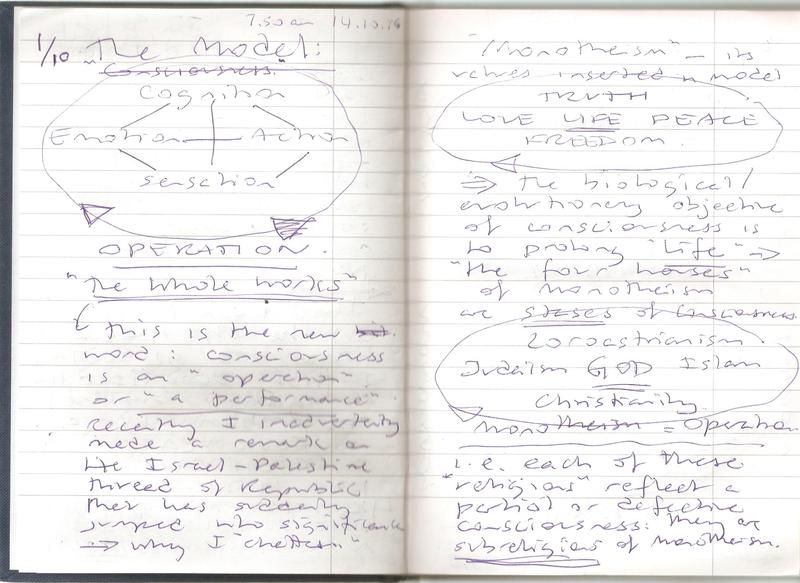 7.50am 14.10.76
1/10 "The Model:
Consciousness."
Cognition
Emotion Action
sensation
OPERATION.
"The whole works"
this is the new
word: consciousness
is an "operation"
or "a performance"
recently I inadvertently
made a remark on
the Israel-Palestine
thread of Republic
that has suddenly
jumped into significance
⇒ why I "chatter."
"Monotheism" – its
values inserted in model
TRUTH
LOVE LIFE PEACE
FREEDOM.
⇒ the biological/
evolutionary objective
of consciousness is
to prolong "Life" ⇒
"the four horses"
of monotheism
are stases of consciousness.
Zoroastrianism.
Judaism GOD Islam
Christianity.
monotheism = Operation.
i.e. each of these
"religions" reflect a
partial or defective
consciousness: they are
subreligions of monotheism.